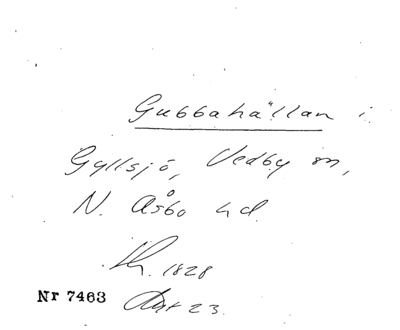 Gubbahällan i
Gyllsjö, Vedby sn,
N. Åsbo hd.
1828
Nr 7463
Akt 23.